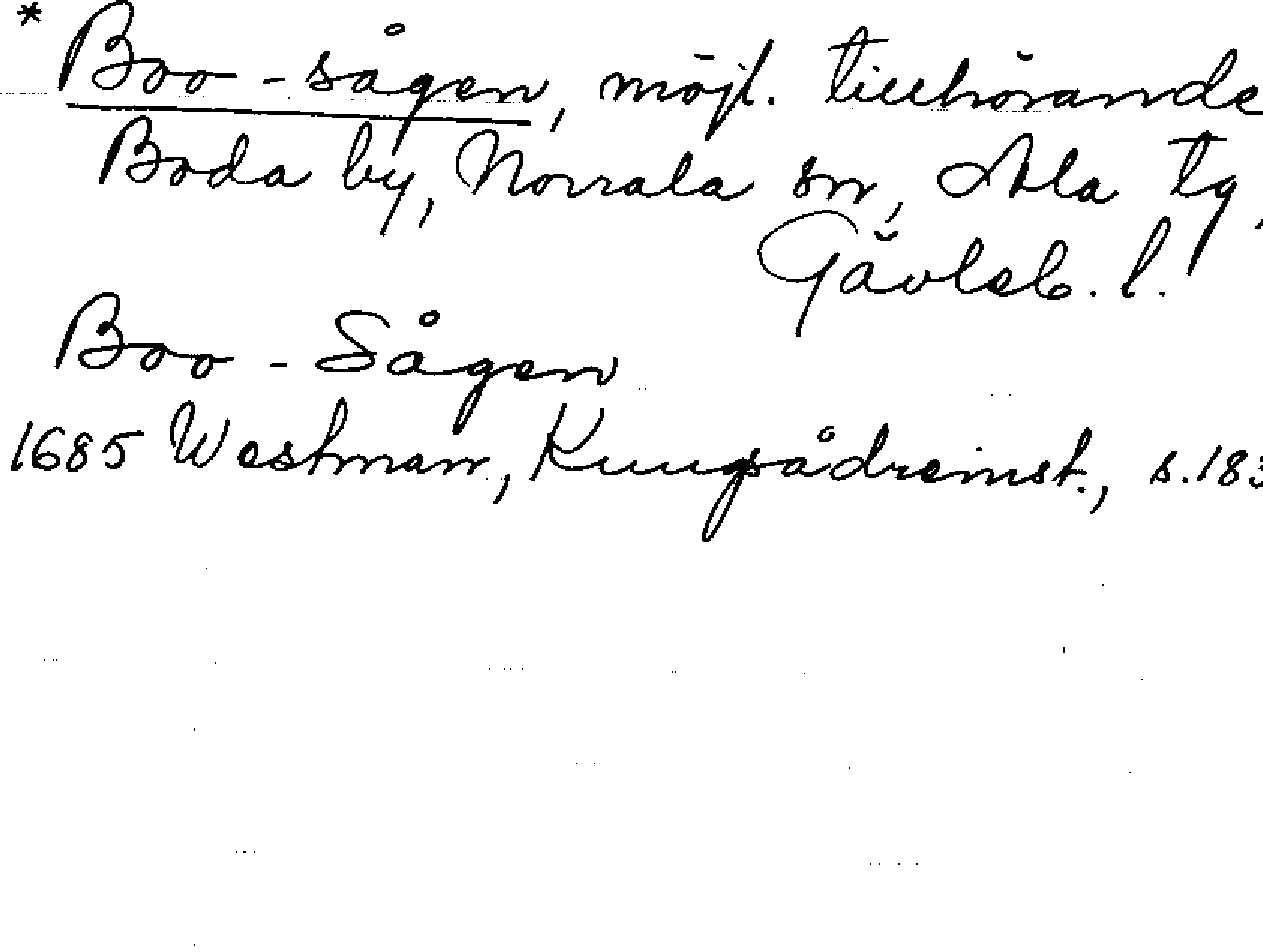 * Boo-sågen, möjl. tillhörande
Boda by, Norrala sn, Ala tg,
Gävleb. l.
Boo-Sågen
1685 Westman, Kungsådreinst., s. 183